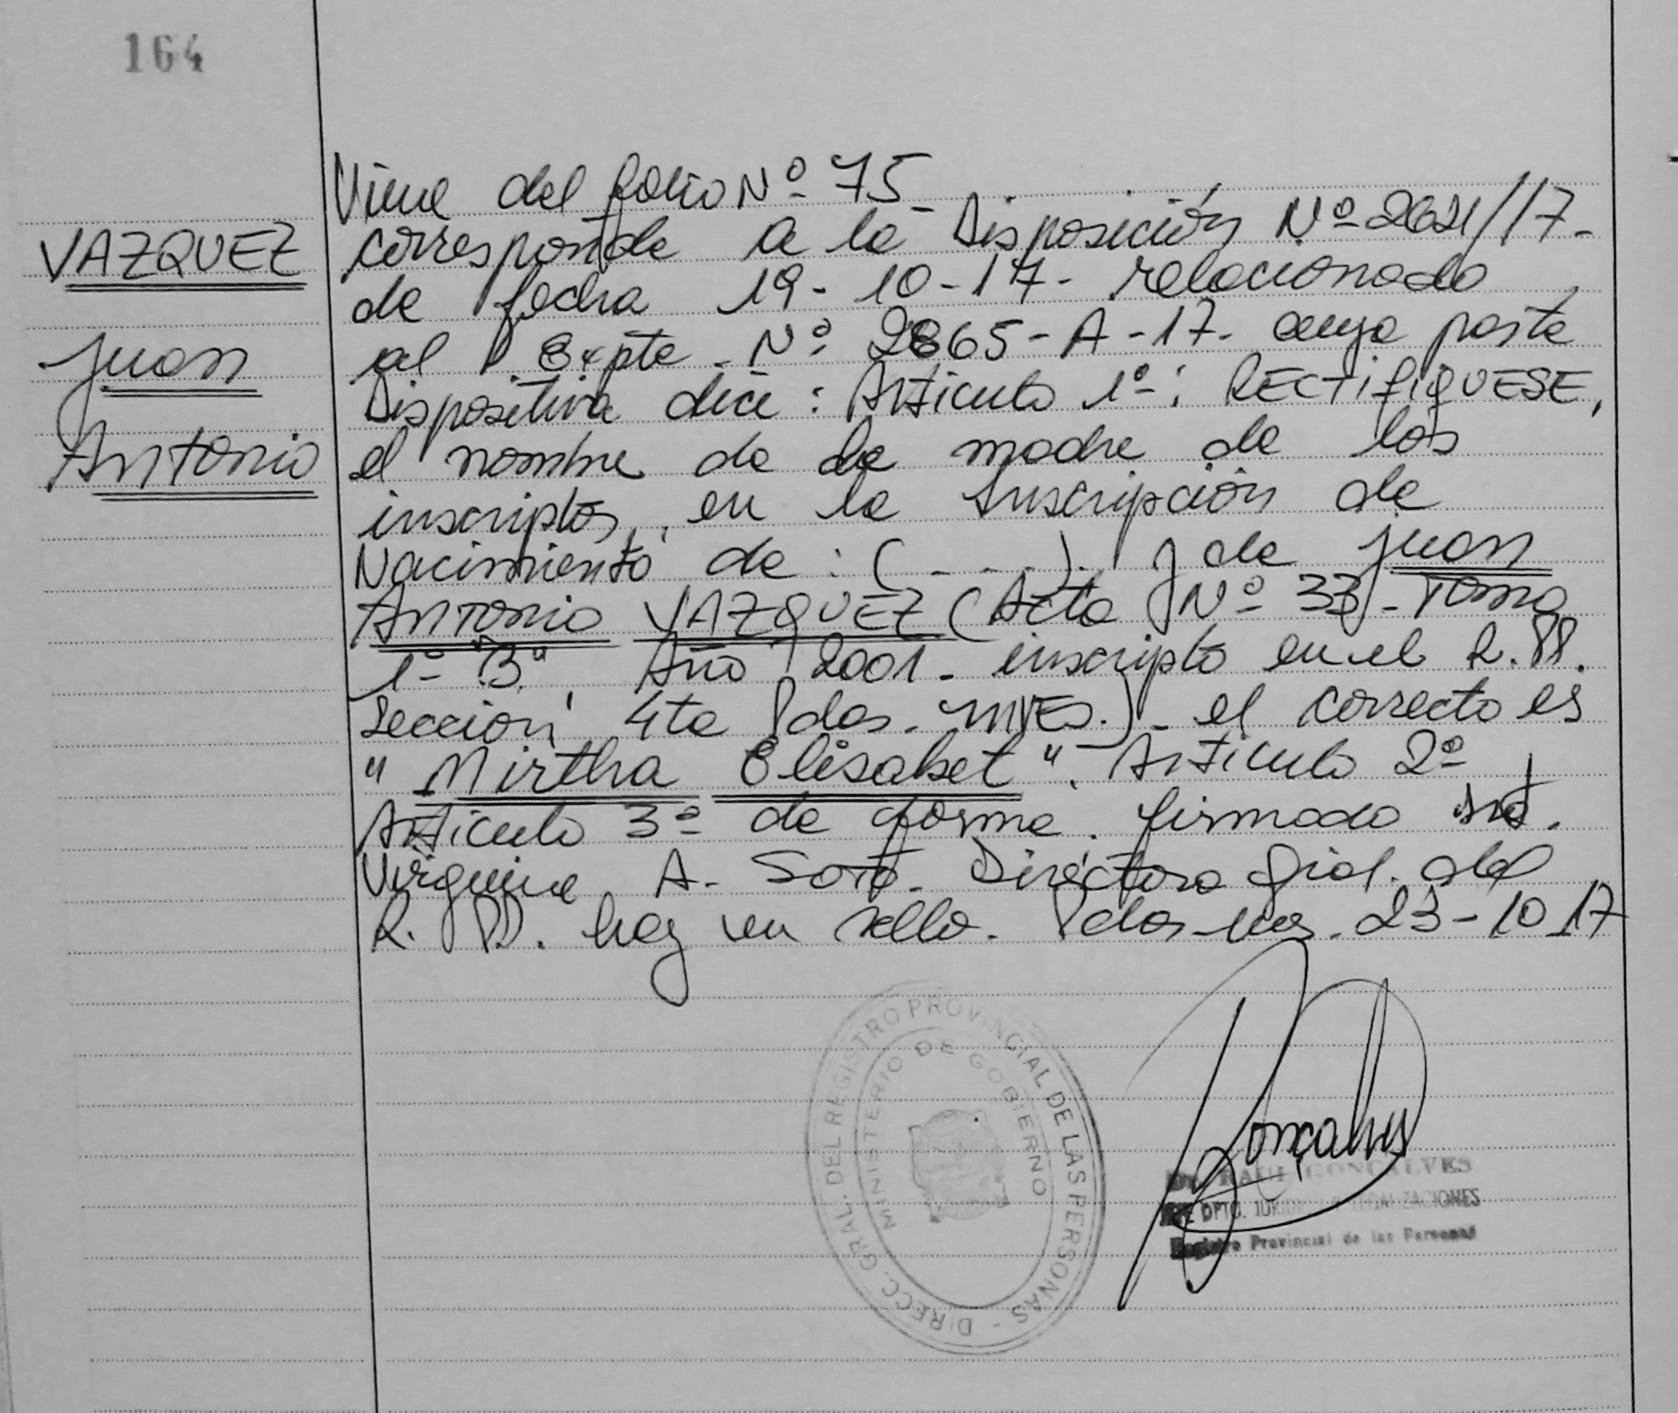 164
VAZQUEZ
Juan
Antonio
Viene del folio Nº 75
corresponde a la Disposición Nº 2621/17-
de fecha 19-10-17- relacionado
al Expte. Nº 2865-A-17- cuya parte
Dispositiva dice: Artículo 1º: RECTIFIQUESE,
el nombre de la madre de los
inscriptos, en la Inscripción de
Nacimiento de: (....). y de Juan
Antonio VAZQUEZ (Acta Nº 33- Tomo
1º "B" Año 2001- inscripto en el R.PP.
Sección 4ta Pdas. MNES.)- el correcto es
"Mirtha Elisabet". Artículo 2º
Artículo 3º de forma. firmado
Virginia A. Soto. Directora Gral. del
R. PP. hay un sello. Pdas-Mnes. 23-10 17
DIRECC. GRAL. DEL REGISTRO PROVINCIAL DE LAS PERSONAS -
MINISTERIO DE GOBIERNO
Gonçalves
Dr. RAUL GONCALVES
DPTO. JURIDICO LEGALIZACIONES
Registro Provincial de las Personas